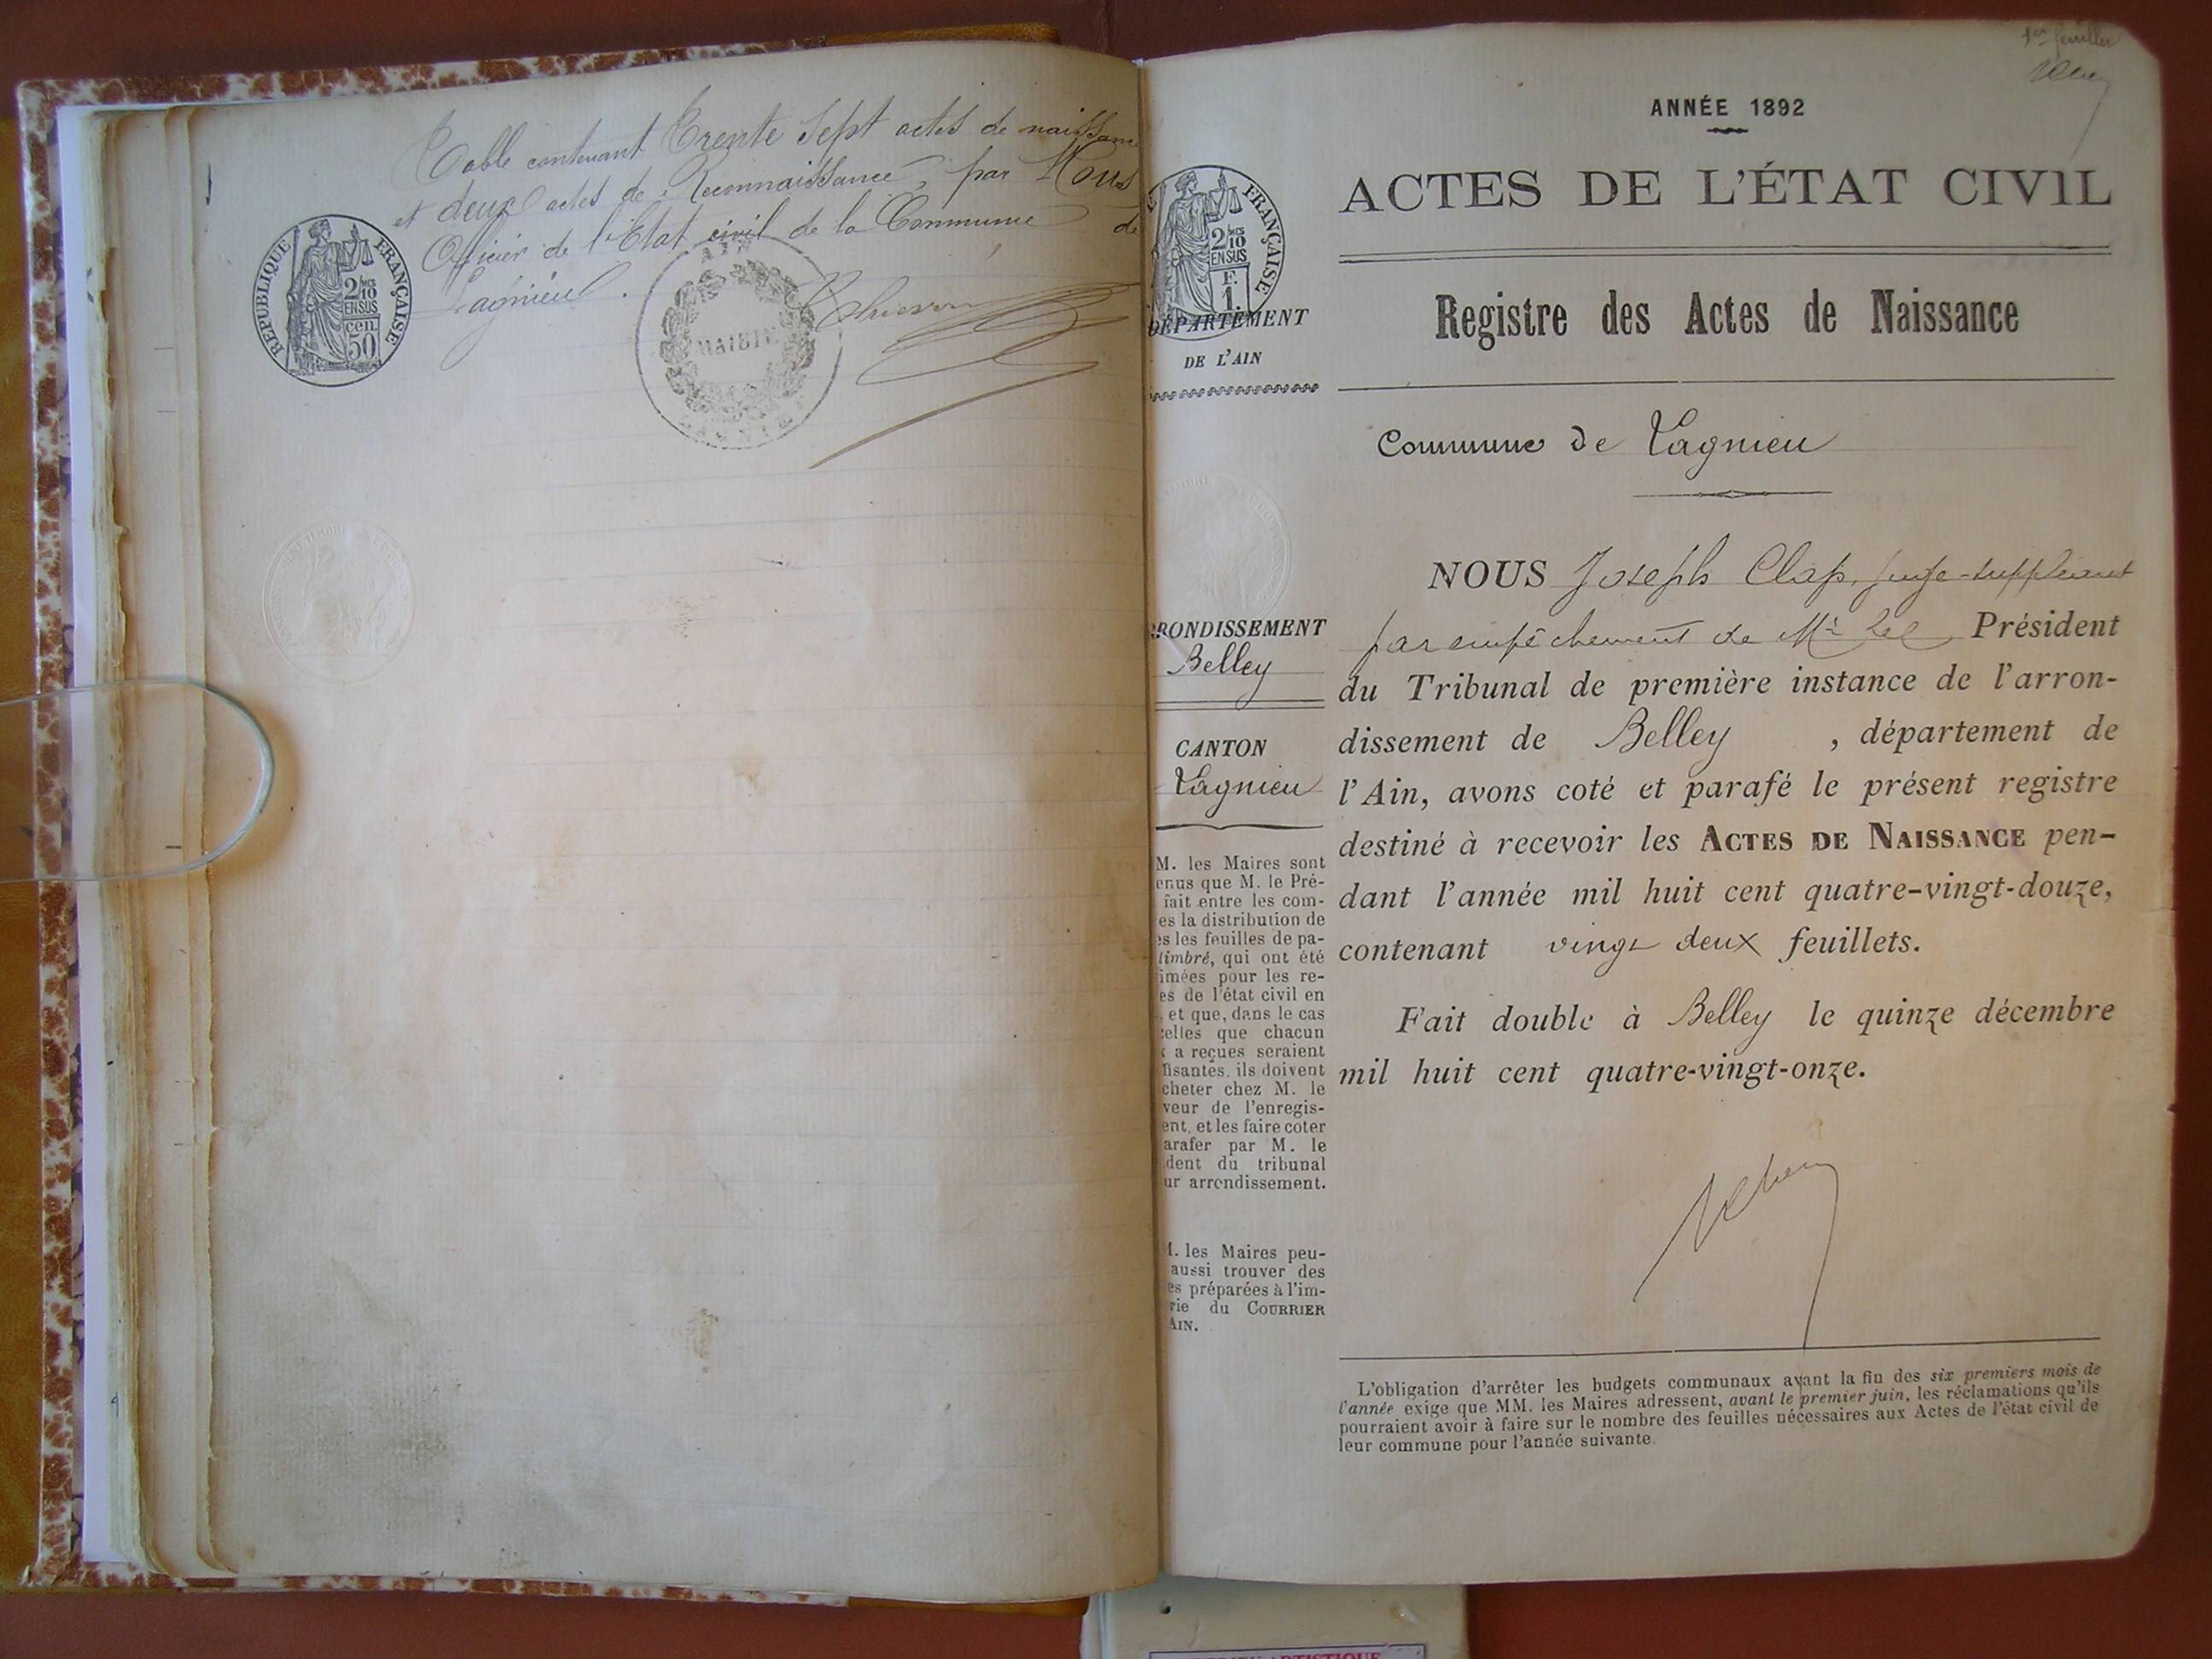 Table contenant Trente Sept actes de naissance
et deux actes de Reconnaissance, par Nous
Officier de l'Etat civil de la Commune de
Lagnieu.
RÉPUBLIQUE FRANÇAISE
2/10
EN SUS
cen.
50
MAIRIE
1er feuillet
ANNÉE 1892
ACTES DE L'ÉTAT CIVIL
Registre des Actes de Naissance
FRANÇAISE
2/10
EN SUS
F.
1.
DÉPARTEMENT
DE L'AIN
Commune de Lagnieu
NOUS Joseph Clap, juge-suppléant
par empêchement de Mr le Président
du Tribunal de première instance de l'arron-
dissement de Belley, département de
l'Ain, avons coté et parafé le présent registre
destiné à recevoir les ACTES DE NAISSANCE pen-
dant l'année mil huit cent quatre-vingt-douze,
contenant vingt deux feuillets.
Fait double à Belley le quinze décembre
mil huit cent quatre-vingt-onze.
RONDISSEMENT
Belley
CANTON
Lagnieu
M. les Maires sont
enus que M. le Pré-
fait entre les com-
es la distribution de
es les feuilles de pa-
timbré, qui ont été
imées pour les re-
es de l'état civil en
, et que, dans le cas
celles que chacun
x a reçues seraient
ffisantes, ils doivent
cheter chez M. le
veur de l'enregis-
ent, et les faire coter
arafer par M. le
dent du tribunal
ur arrondissement.
M. les Maires peu-
aussi trouver des
es préparées à l'im-
rie du COURRIER
AIN.
L'obligation d'arrêter les budgets communaux avant la fin des six premiers mois de
l'année exige que MM. les Maires adressent, avant le premier juin, les réclamations qu'ils
pourraient avoir à faire sur le nombre des feuilles nécessaires aux Actes de l'état civil de
leur commune pour l'année suivante.
ARTISTIQUE